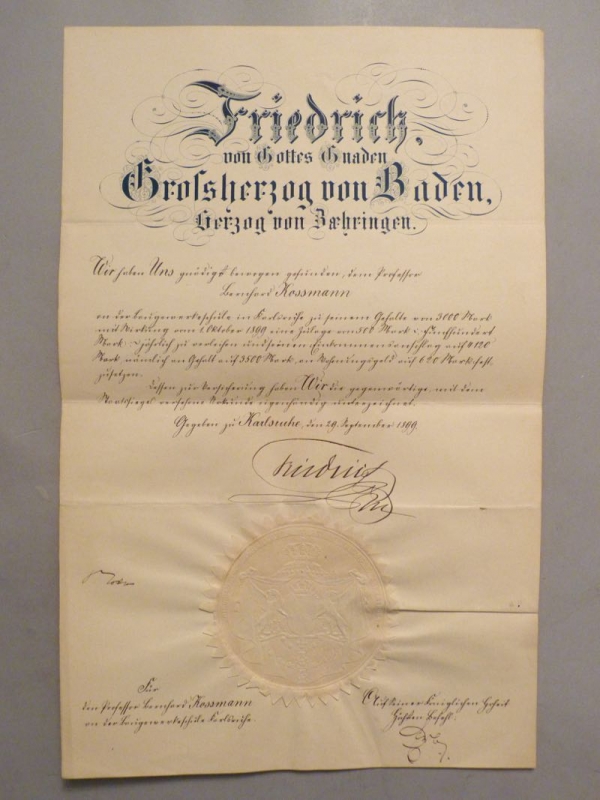 Friedrich,
von Gottes Gnaden
Großherzog von Baden,
Herzog von Zæhringen.
Wir haben Uns gnädigst bewogen gefunden, dem Professor
Bernhard Kossmann
an der Baugewerkeschule in Karlsruhe zu seinem Gehalte von 3000 Mark
mit Wirkung vom 1. Oktober 1899 eine Zulage von 500 Mark : Fünfhundert
Mark : jährlich zu verleihen und seinen Einkommensanschlag auf 4120
Mark, nämlich an Gehalt auf 3500 Mark, an Wohnungsgeld auf 620 Mark fest
zusetzen.
Dessen zur Versicherung haben Wir die gegenwärtige, mit dem
Staatssiegel versehene Urkunde eigenhändig unterzeichnet.
Gegeben zu Karlsruhe, den 29. September 1899.
Friedrich
Für
den Professor Bernhard Kossmann
an der Baugewerkeschule Karlsruhe.
Auf Seiner Königlichen Hoheit
Höchsten Befehl: